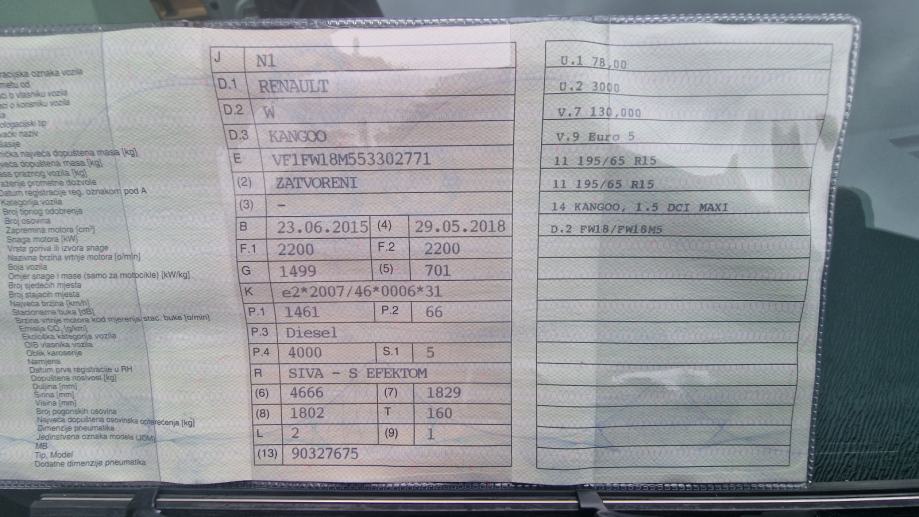 acijska oznaka vozila
metu od
ci o vlasniku vozila
ci o korisniku vozila
ologacijski tip
vački naziv
šasije
čka najveća dopuštena masa [kg]
veća dopuštena masa [kg]
asa praznog vozila [kg]
aženje prometne dozvole
Datum registracije reg. oznakom pod A
Kategorija vozila
Broj tipnog odobrenja
Broj osovina
Zapremina motora [cm³]
Snaga motora [kW]
Vrsta goriva ili izvora snage
Nazivna brzina vrtnje motora [o/min]
Boja vozila
Omjer snage i mase (samo za motocikle) [kW/kg]
Broj sjedećih mjesta
Broj stajaćih mjesta
Najveća brzina [km/h]
Stacionarna buka [dB]
Brzina vrtnje motora kod mjerenja stac. buke [o/min]
Emisija CO₂ [g/km]
Ekološka kategorija vozila
OIB vlasnika vozila
Oblik karoserije
Namjena
Datum prve registracije u RH
Dopuštena nosivost [kg]
Duljina [mm]
Širina [mm]
Visina [mm]
Broj pogonskih osovina
Najveća dopuštena osovinska opterećenja [kg]
Dimenzije pneumatika
Jedinstvena oznaka modela (JOM)
MB
Tip, Model
Dodatne dimenzije pneumatika
J N1
D.1 RENAULT
D.2 W
D.3 KANGOO
E VF1FW18M553302771
(2) ZATVORENI
(3) –
B 23.06.2015 (4) 29.05.2018
F.1 2200 F.2 2200
G 1499 (5) 701
K e2*2007/46*0006*31
P.1 1461 P.2 66
P.3 Diesel
P.4 4000 S.1 5
R SIVA - S EFEKTOM
(6) 4666 (7) 1829
(8) 1802 T 160
L 2 (9) 1
(13) 90327675
U.1 78,00
U.2 3000
V.7 130,000
V.9 Euro 5
11 195/65 R15
11 195/65 R15
14 KANGOO, 1.5 DCI MAXI
D.2 FW18/FW18M5